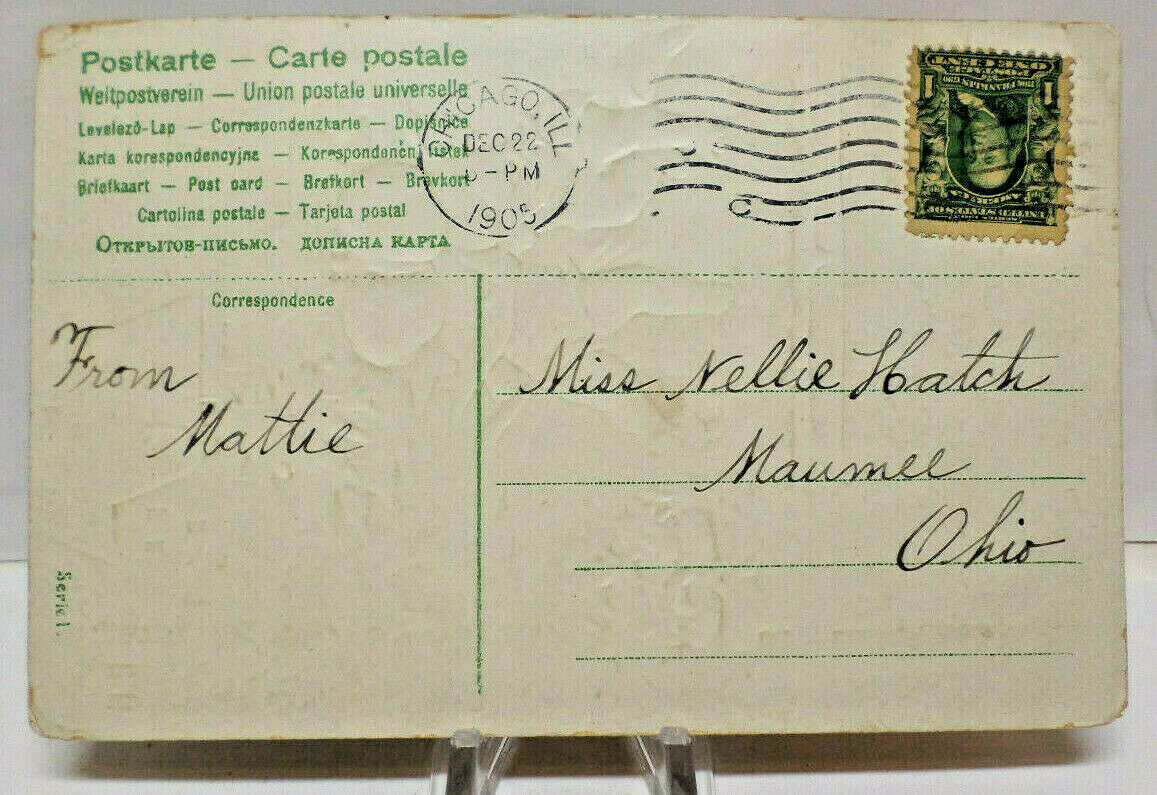 Postkarte — Carte postale
Weltpostverein — Union postale universelle
Levelező-Lap — Correspondenzkarte — Dopisnice
Karta korespondencyjna — Korespondenčni listek
Briefkaart — Post card — Brefkort — Brevkort
Cartolina postale — Tarjeta postal
Открытов-письмо. дописна карта
CHICAGO, ILL
DEC 22
- PM
1905
1 1
Correspondence
From
Mattie
Miss Nellie Hatch
Maumee
Ohio
Serie